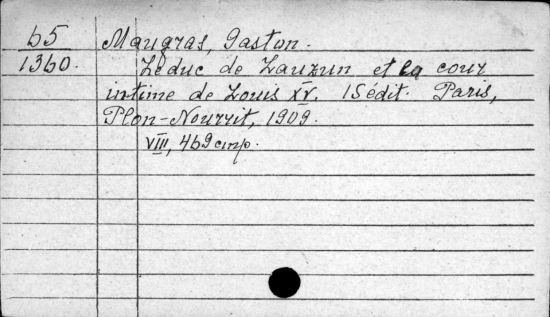 65 Maugras, Gaston.
1360. Le duc de Lauzun et la cour
intime de Louis XV. 15 édit. Paris,
Plon-Nourrit, 1909.
VIII, 469 стр.